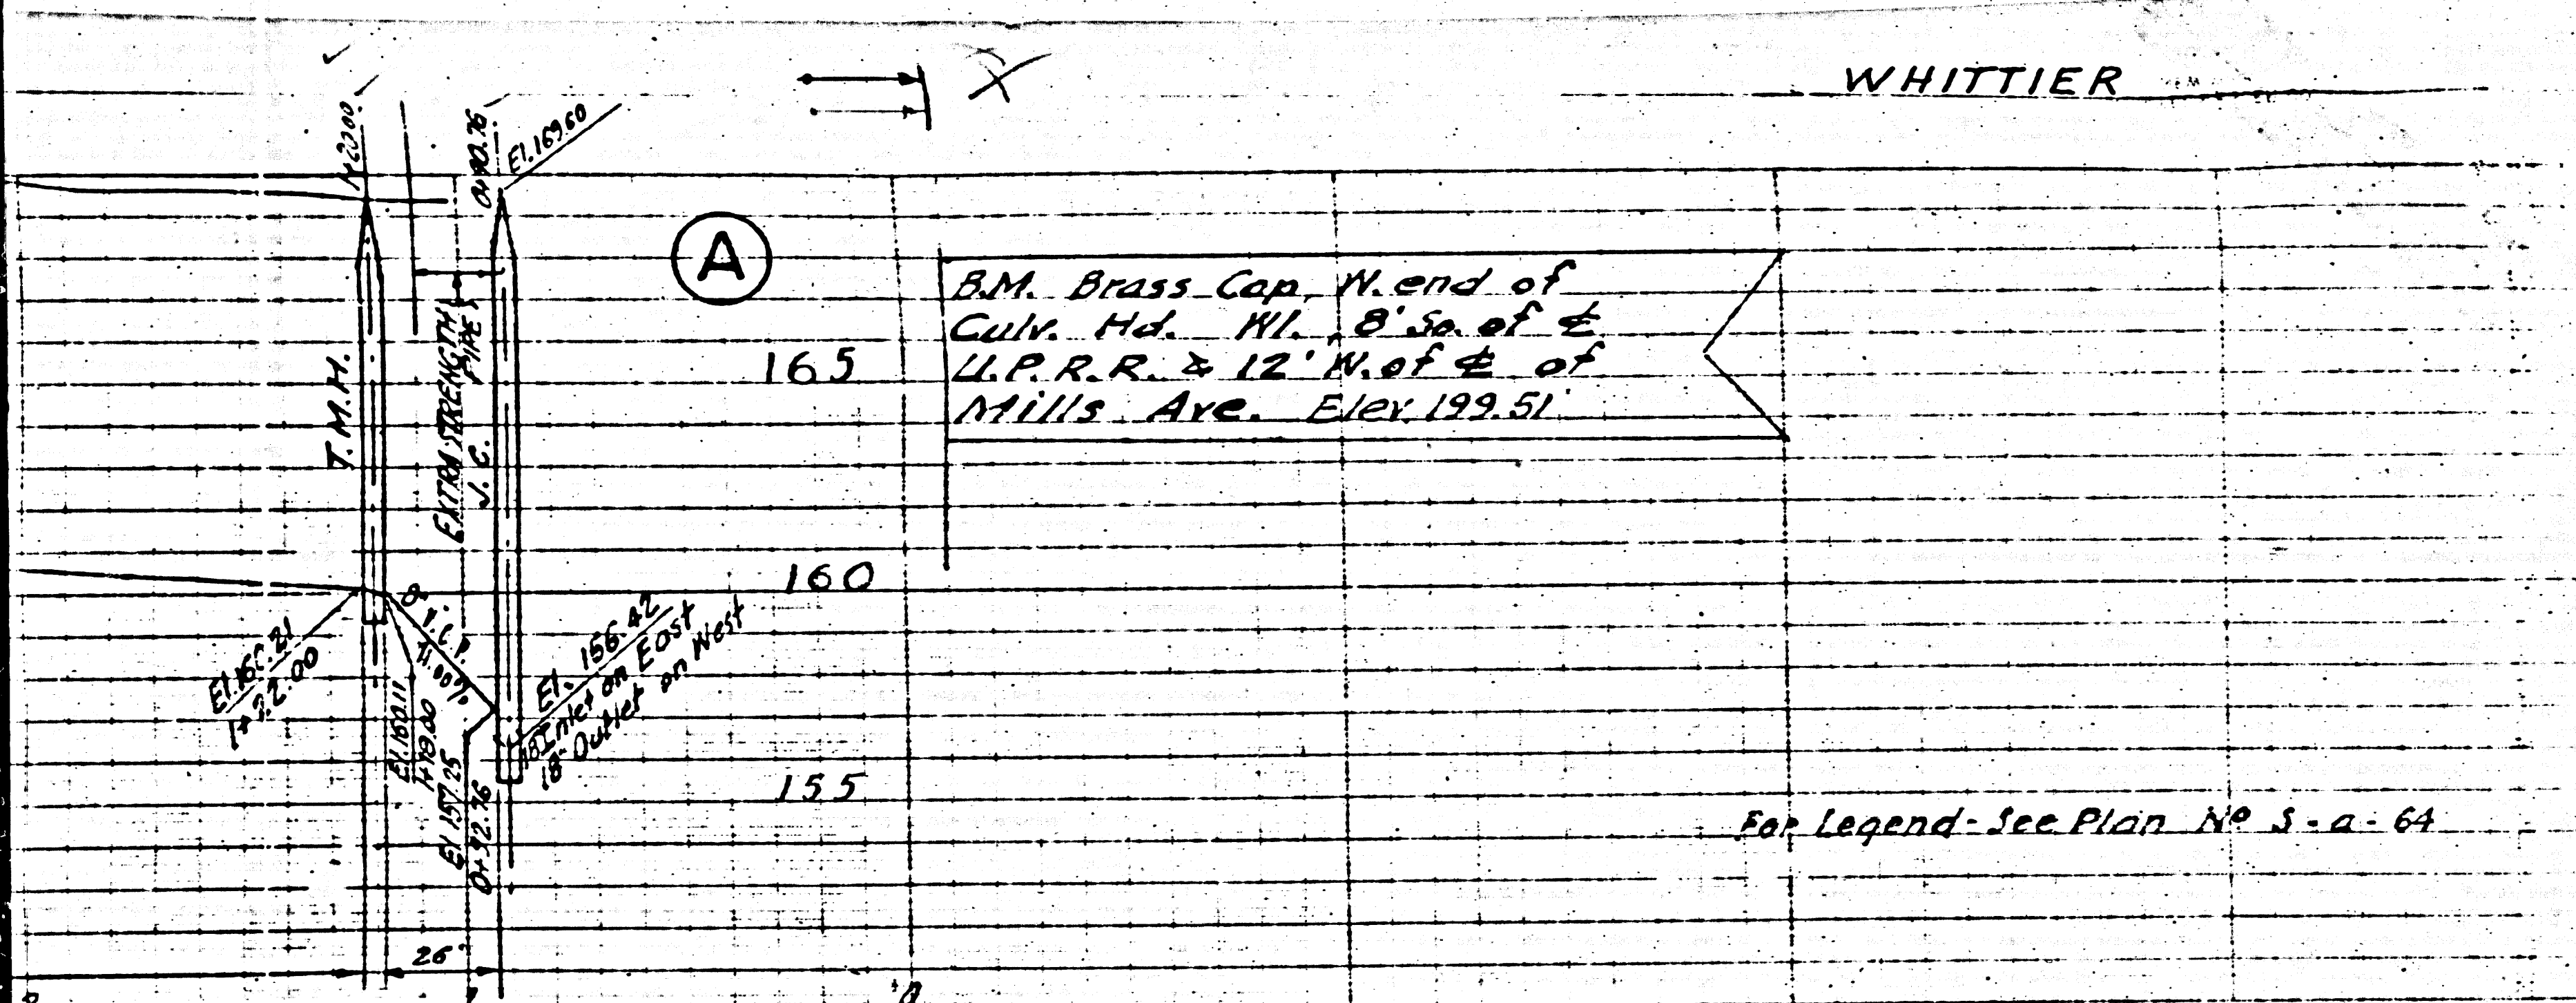 WHITTIER
El. 169.60
A
T. M. H.
EXTRA STRENGTH
J. C. PIPE
B.M. Brass Cap, W. end of
Culv. Hd. Wl. 8' So. of ℄
U.P.R.R. & 12' W. of ℄ of
Mills Ave. Elev. 199.51'
165
160
155
8"
V.C.P.
4.00%
El. 160.11
1+18.00
El 157.25
0+92.76
El. 156.42
18" Inlet on East
18" Outlet on West
For Legend - See Plan Nº S-a-64
26'